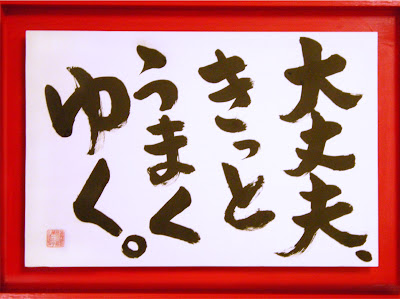 大丈夫、
きっと
うまく
ゆく。